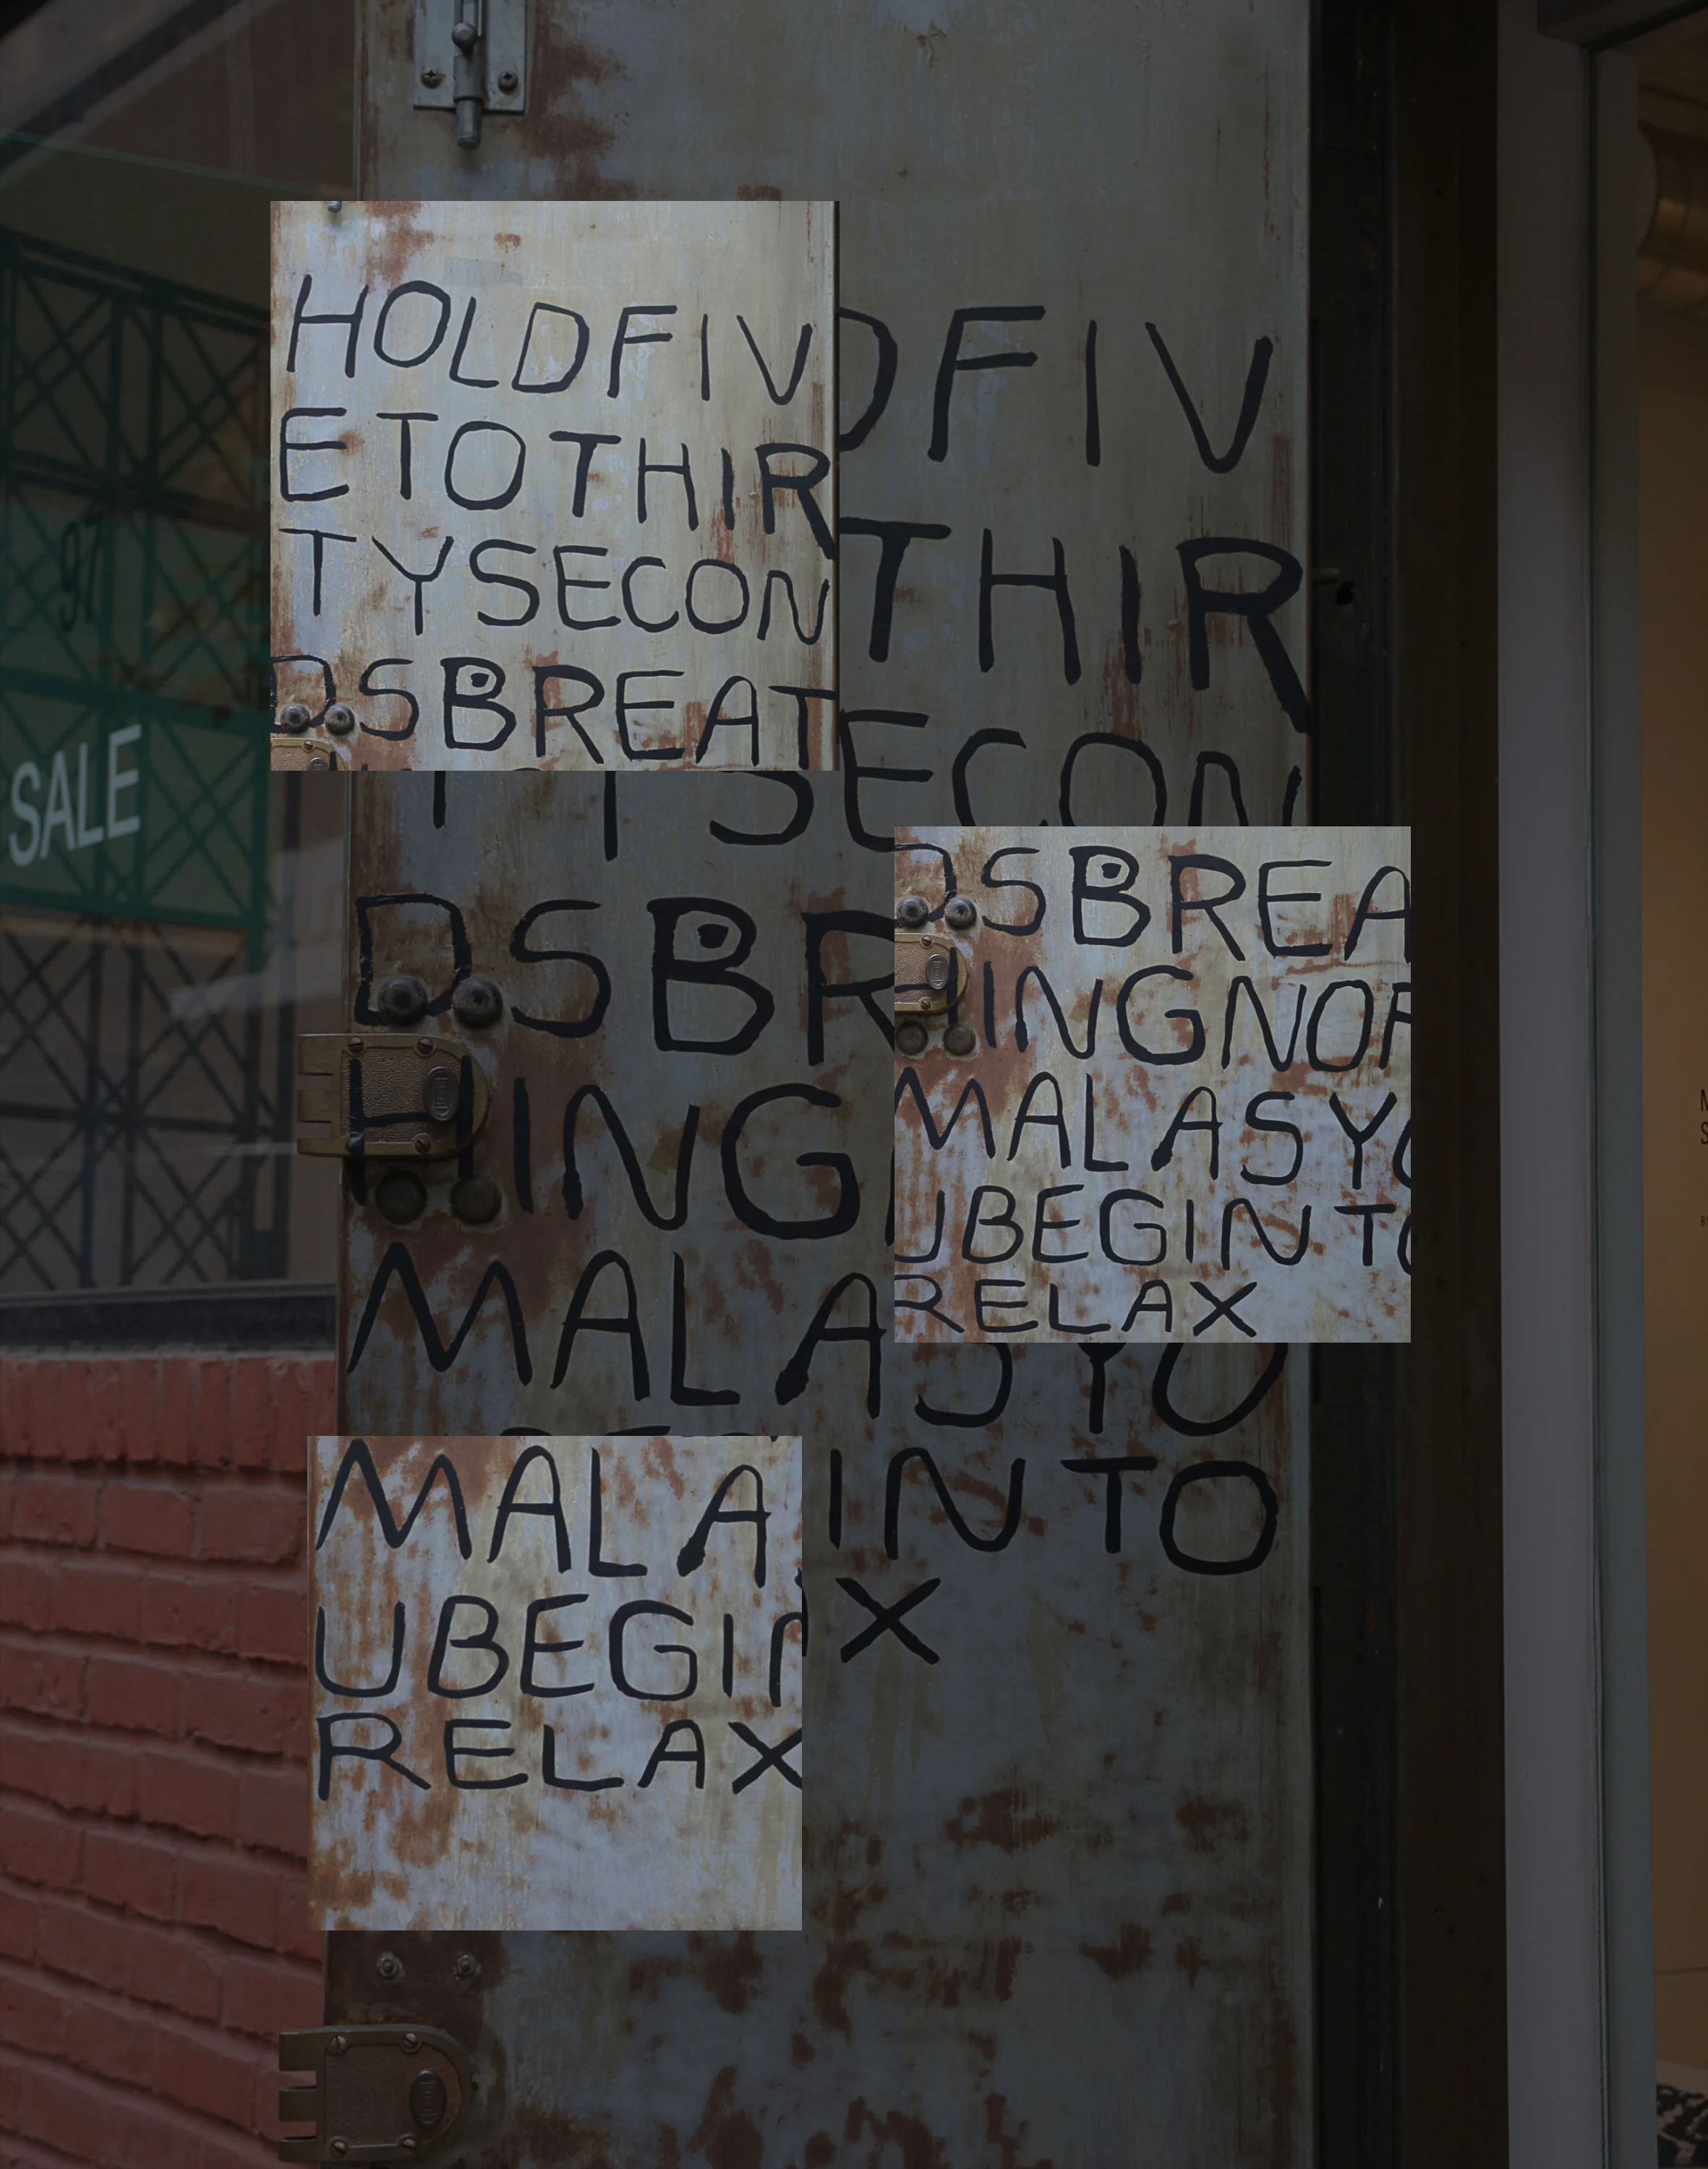 HOLDFIV
ETOTHIR
TYSECON
DSBREAT
FIV
THIR
TYSECON
97
SALE
DSBR
HING
MALASYO
INTO
X
DSBREA
HINGNOR
MALASYO
UBEGINTO
RELAX
MALA
UBEGIN
RELAX